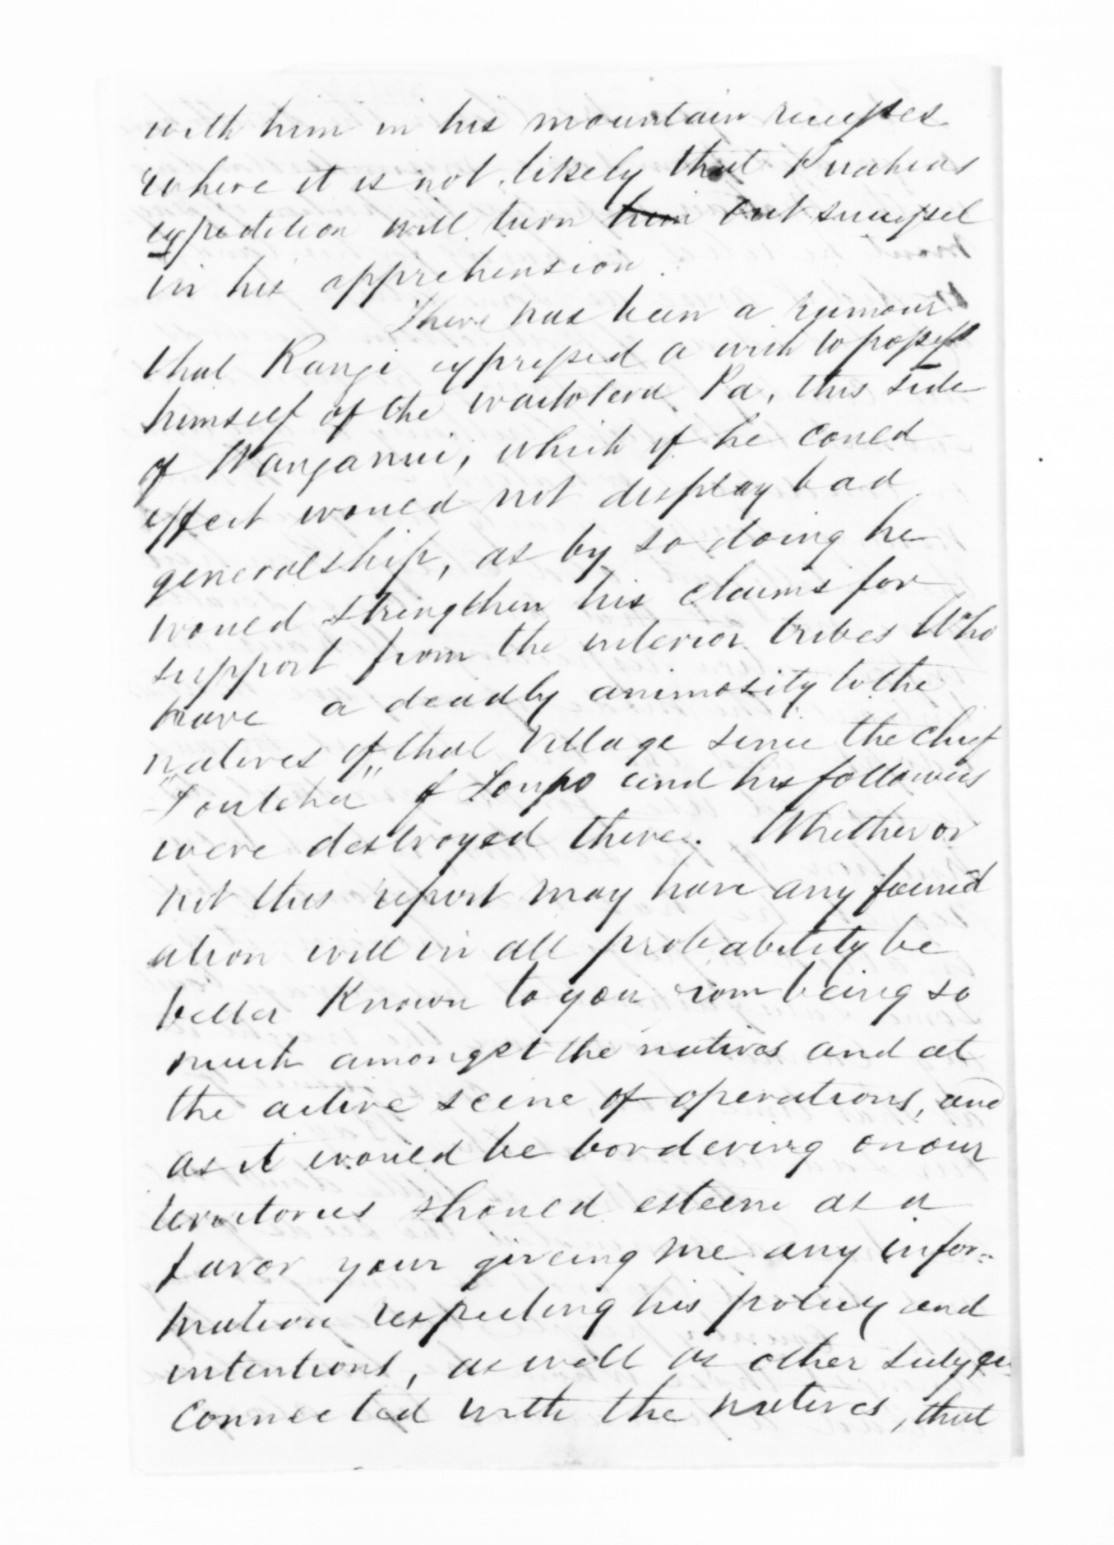 with him in his mountain recesses
where it is not likely that Puahas
expedition will turn him out successful
in his apprehension.
There has been a rumour
that Rangi expressed a wish to possess
himself of the waitotara Pa, this side
of Wanganui, which if he could
effect would not display bad
generalship, as by so doing he
would strengthen his claims for
support from the interior tribes Who
have a deadly animosity to the
natives of that Village since the chief
of Taupo and his followers
were destroyed there. Whether or
not this report may have any found
ation will in all probability be
better Known to you from being so
much amongst the natives and at
the active scene of operations, and
as it would be bordering on our
territories should esteem as a
favor your giveing me any infor=
mation respecting his policy and
intentions, as well as other
connected with the natives, that